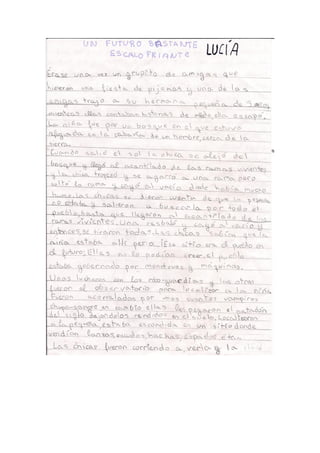 UN FUTURO BASTANTE
ESCALOFRIANTE
LUCÍA
Érase una vez un grupito de amigas que
hicieron una fiesta de pijamas y una de las
amigas trajo a su hermana pequeña de
mientras ellas contaban historias de miedo ella escapó.
La niña fue por un bosque en el que estuvo
refugiada en la cabaña de un hombre, cerca de la
sierra.
Cuando salió el sol la chica se alejó del
bosque y llegó al acantilado de las ramas vivientes
y la niña tropezó y se agarró a una rama pero
soltó la rama y cayó al vacío donde había mucho
humo, las chicas se dieron cuenta de que la pequeña
no estaba y salieron a buscarla por todo el
pueblo, hasta que llegaron al acantilado de las
ramas vivientes. Una resbaló y cayó al vacío y
entonces, se tiraron todas. Las chicas sabían que la
niña estaba allí pero, ¡Ese sitio era el pueblo en
el futuro! Ellas no lo podían creer, el pueblo
estaba gobernado por monstruos y máquinas.
Unas lucharon con los robo-guardias y las otras
fueron al observatorio para localizar a la niña
Fueron acorraladas por unos cuantos vampiros
chupa-sangre en cambio ellas les pegaron el patadón
del siglo dejándolos rendidos en el suelo. Localizaron
a la pequeña, estaba escondida en un sitio donde
vendían lanzas, escudos, hachas, espadas etc.
Las chicas fueron corriendo a verla y la